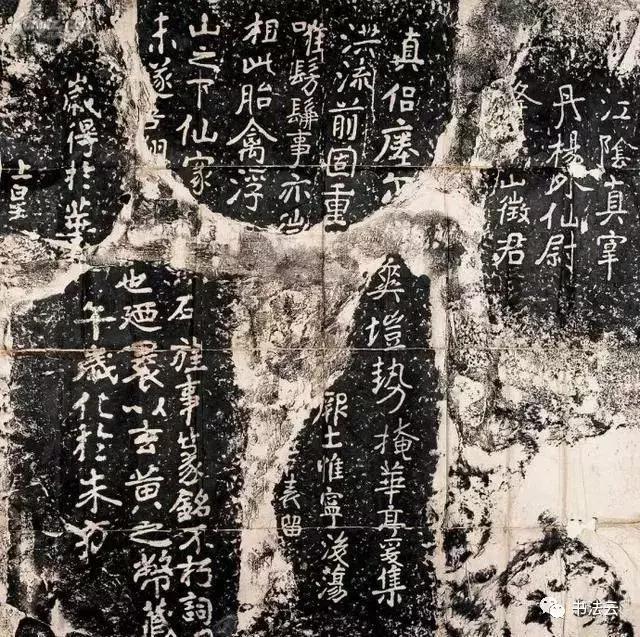 上皇
歲得於華
未遂吾翔
山之下仙家
相此胎禽浮
唯髣髴事亦
洪流前固重
真侶瘞尔
山徵君
丹楊外仙尉
江陰真宰
午歲化於朱方
也廼裹以玄黃之幣藏
石旌事篆銘不朽詞
表留
厥土惟寧後蕩
爽塏勢掩華亭爰集
书法云